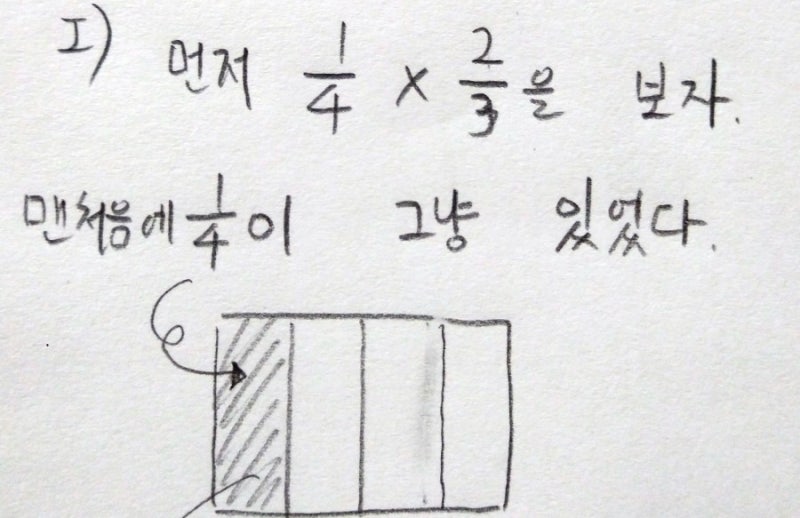 I) 먼저 1/4 × 2/3을 보자.
맨처음에 1/4이 그냥 있었다.